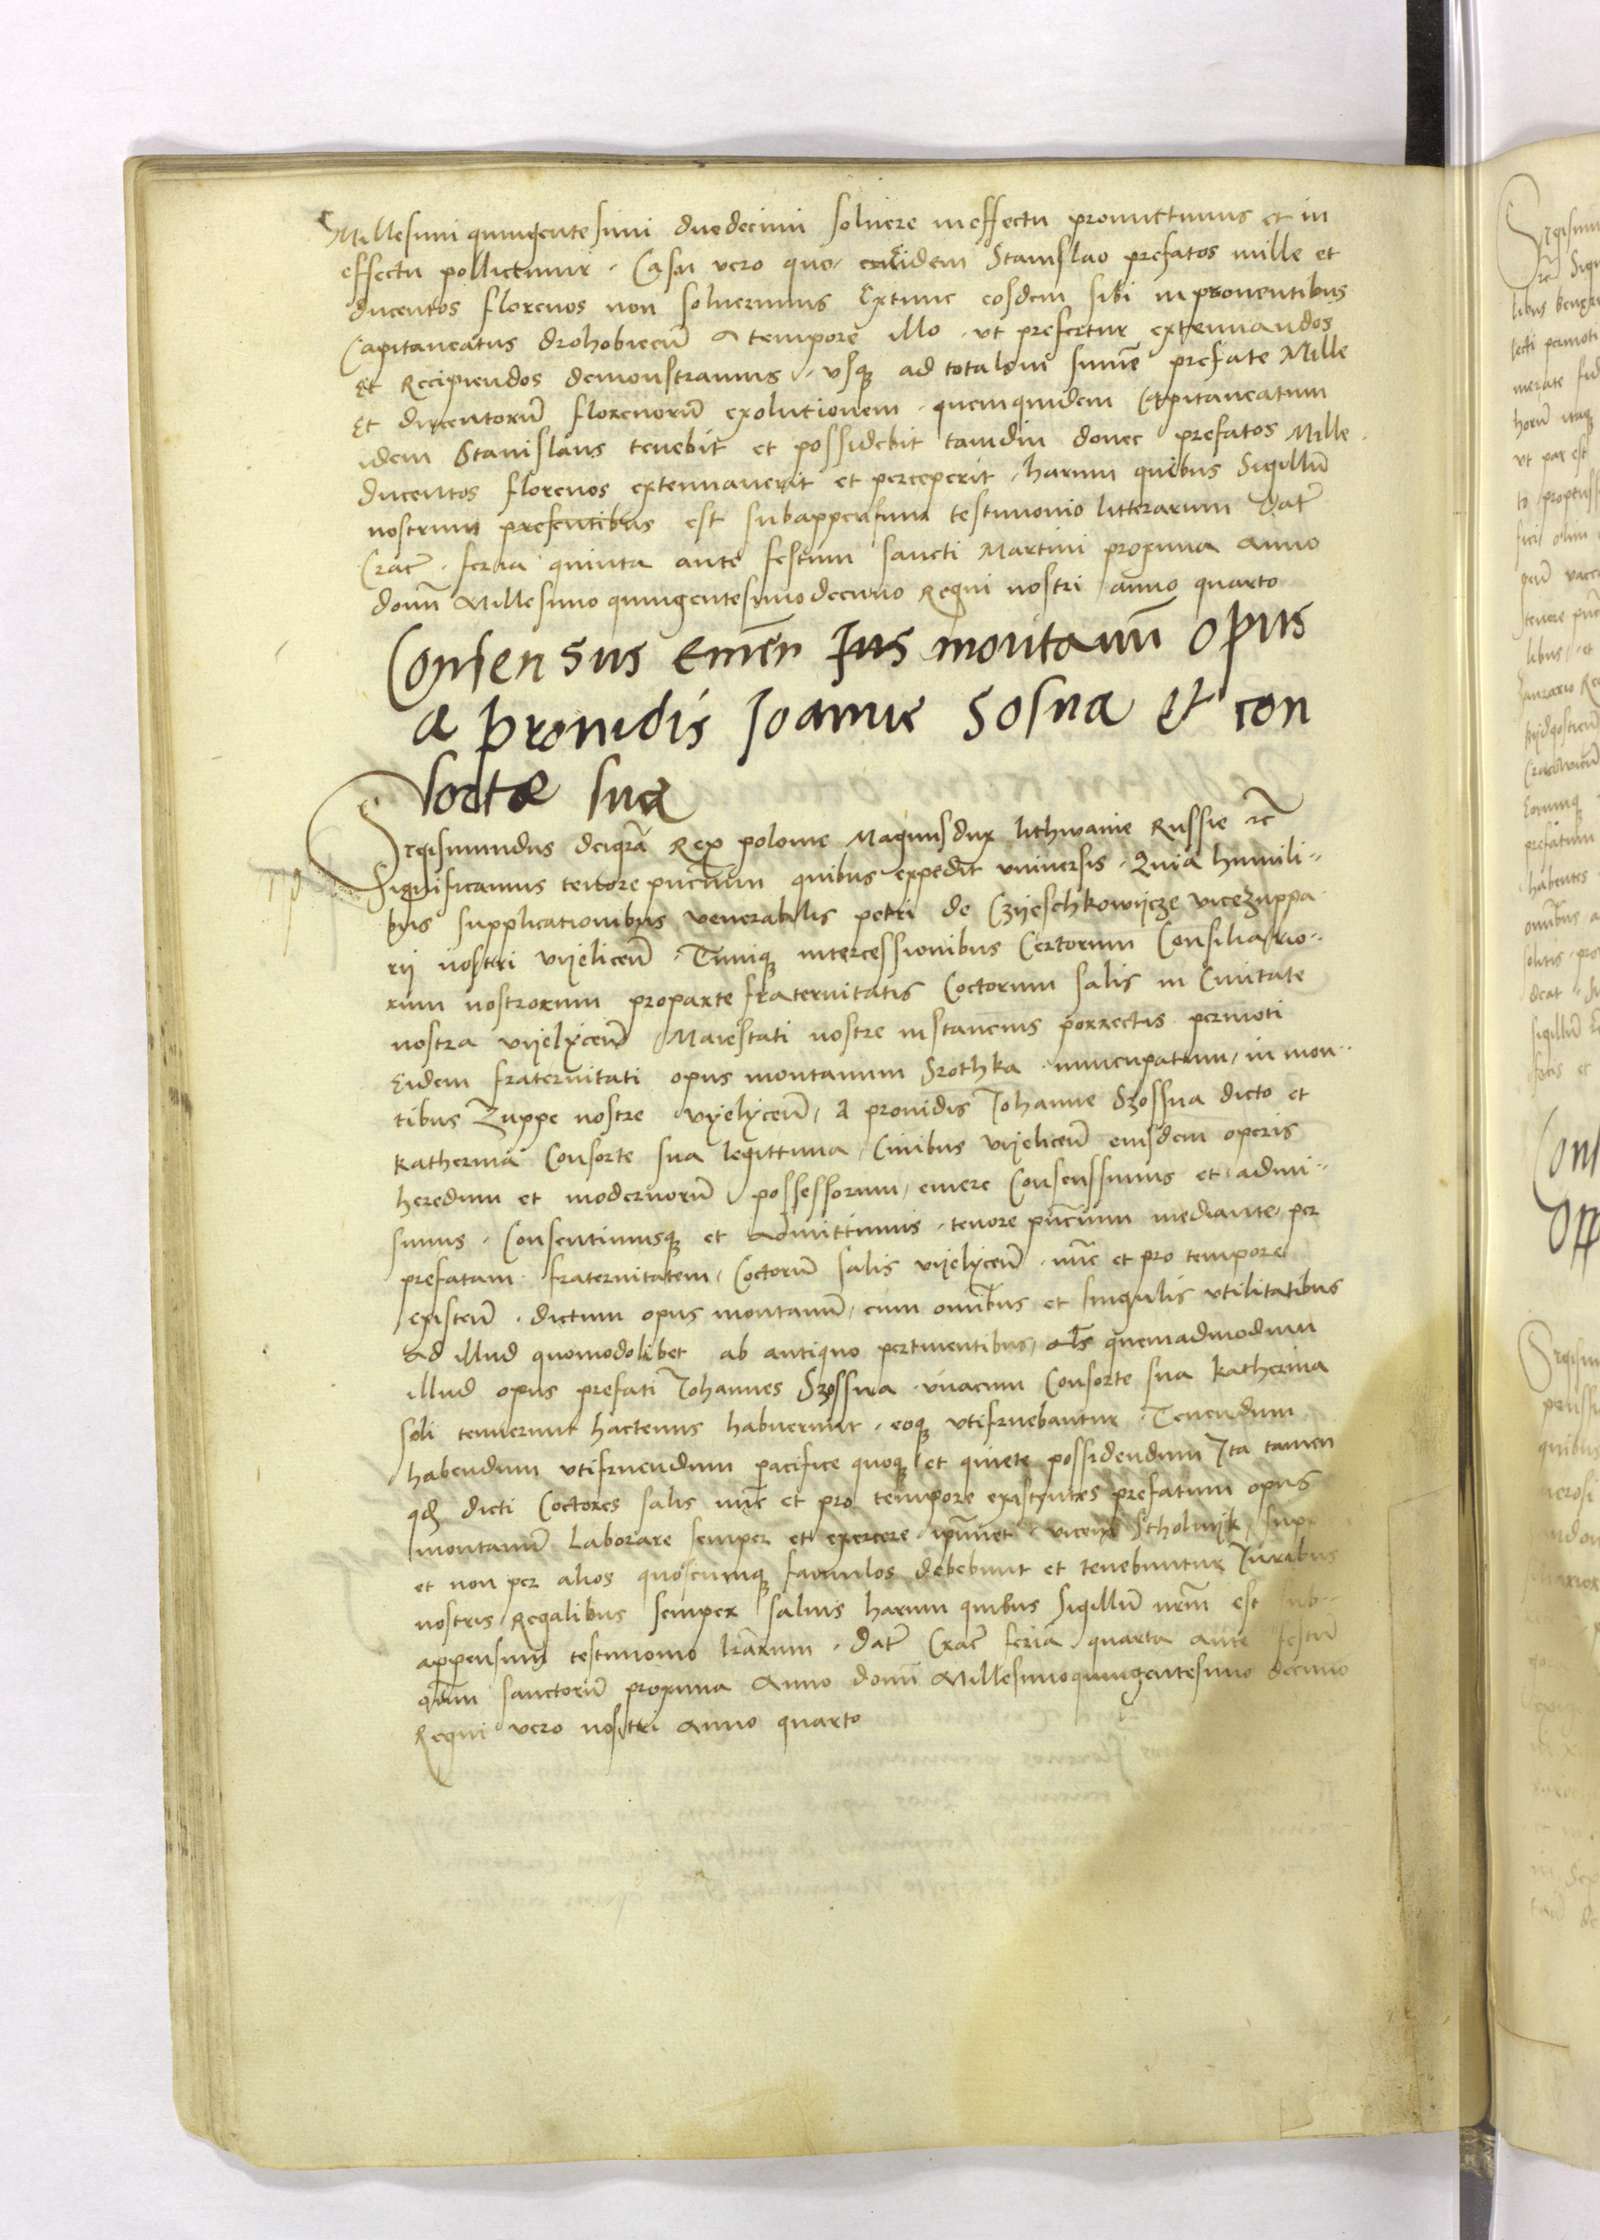 Millesimi quingentesimi duodecimi solvere in effectu promittimus et in
effectu pollicemur. Casu vero quo eidem Stanislao prefatos mille et
ducentos florenos non solverimus Extunc eosdem sibi in proventibus
Capitaneatus drohobiceñ a tempore illo ut prefertur extenuandos
Et Recipiendos demonstramus, usq ad totalem sum̃e prefate Mille
Et ducentorũ florenorũ exolutionem. quemquidem Capitaneatum
idem Stanislaus tenebit et possidebit tamdiu donec prefatos Mille
ducentos florenos extenuaverit et perceperit, harum quibus Sigillũ
nostrum presentibus est subappensum testimonio litterarum Dat̃
Crac̃. feria quinta ante festum sancti Martini proxima anno
domĩ Millesimo quingentesimodecimo Regni nostri anno quarto
Consensus emeñ Jus montanũ opus
a providis Joanne Sosna et con
sorte sua
Sigismundus dei gr̃a Rex polonie Magnusdux lithwanie Russie ꝛc̃
Significamus tenore pñcium quibus expedit universis. Quia humili-
bus supplicationibus venerabilis petri de Czyeschkowycze vicezuppa
rij nostri vyeliceñ. Tumq intercessionibus Certorum Consiliario-
rum nostrorum proparte fraternitatis Coctorum salis in Civitate
nostra vyelyceñ Maiestati nostre instancius porrectis permoti
Eidem fraternitati opus montanum Srothka nuncupatum, in mon-
tibus Zuppe nostre vyelyceñ, a providis Johanne Szossna dicto et
katherina Consorte sua legittima, Civibus vyeliceñ eiusdem operis
heredum et modernorũ possessorum, emere Consenssimus et admi-
simus. Consentimusq et admittimus. tenore pñcium mediante, per
prefatam fraternitatem, Coctorũ salis vyelyceñ. nũc et pro tempore
existeñ. dictum opus montanũ, cum om̃ibus et singulis utilitatibus
ad illud quomodolibet ab antiquo pertinentibus, als quemadmodum
illud opus prefati Johannes Szossna unacum Consorte sua katherina
soli tenuerunt hactenus habuerunt, eoq utifruebantur. Tenendum
habendum utifruendum pacifice quoq et quiete possidendum Ita tamen
qd dicti Coctores salis nũc et pro tempore existentes prefatum opus
montanũ Laborare semper et exercere ip̃imet vices Stholnyk, sup
et non per alios quoscumq famulos debebunt et tenebuntur Juribus
nostris Regalibus semper salvis harum quibus Sigillũ nr̃m est sub-
appensum testimonio lr̃arum. Dat̃ Crac̃ feria quarta ante festũ
om̃ium sanctorũ proxima Anno domĩ Millesimoquingentesimo decimo
Regni vero nostri anno quarto